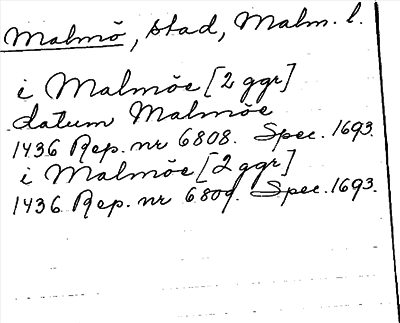 Malmö, stad, Malm. l.
i Malmöe [2 ggr]
datum Malmöe
1436 Rep. nr 6808. Spec. 1693.
i Malmöe [2 ggr]
1436 Rep. nr 6809. Spec. 1693.